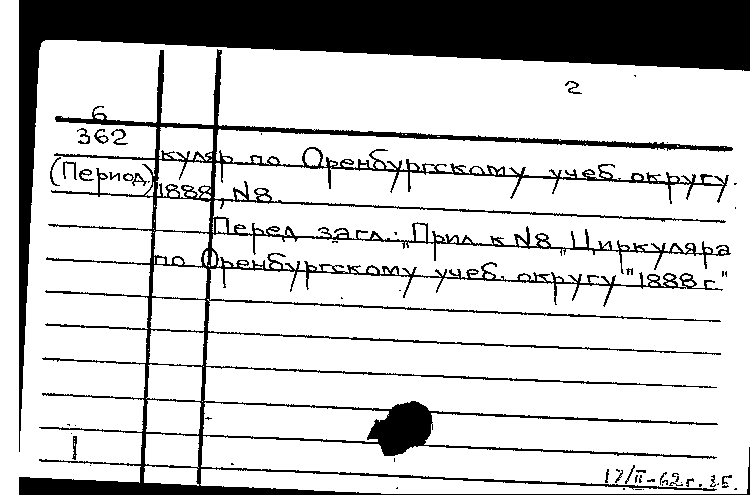 2
6
362
(Период)
куляр по Оренбургскому учеб. округу.
1888, N8.
Перед загл.: „Прил. к N8 „Циркуляра
по Оренбургскому учеб. округу" 1888 г."
1
17/II-62г.